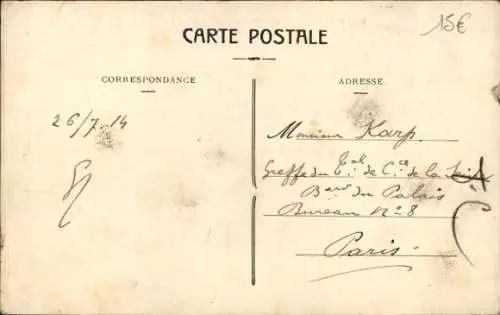 15€
CARTE POSTALE
CORRESPONDANCE
ADRESSE
26/7.14
Monsieur Karp.
Greffe du Tal de Cce de la Seine
Bard du Palais
Bureau No 8
Paris